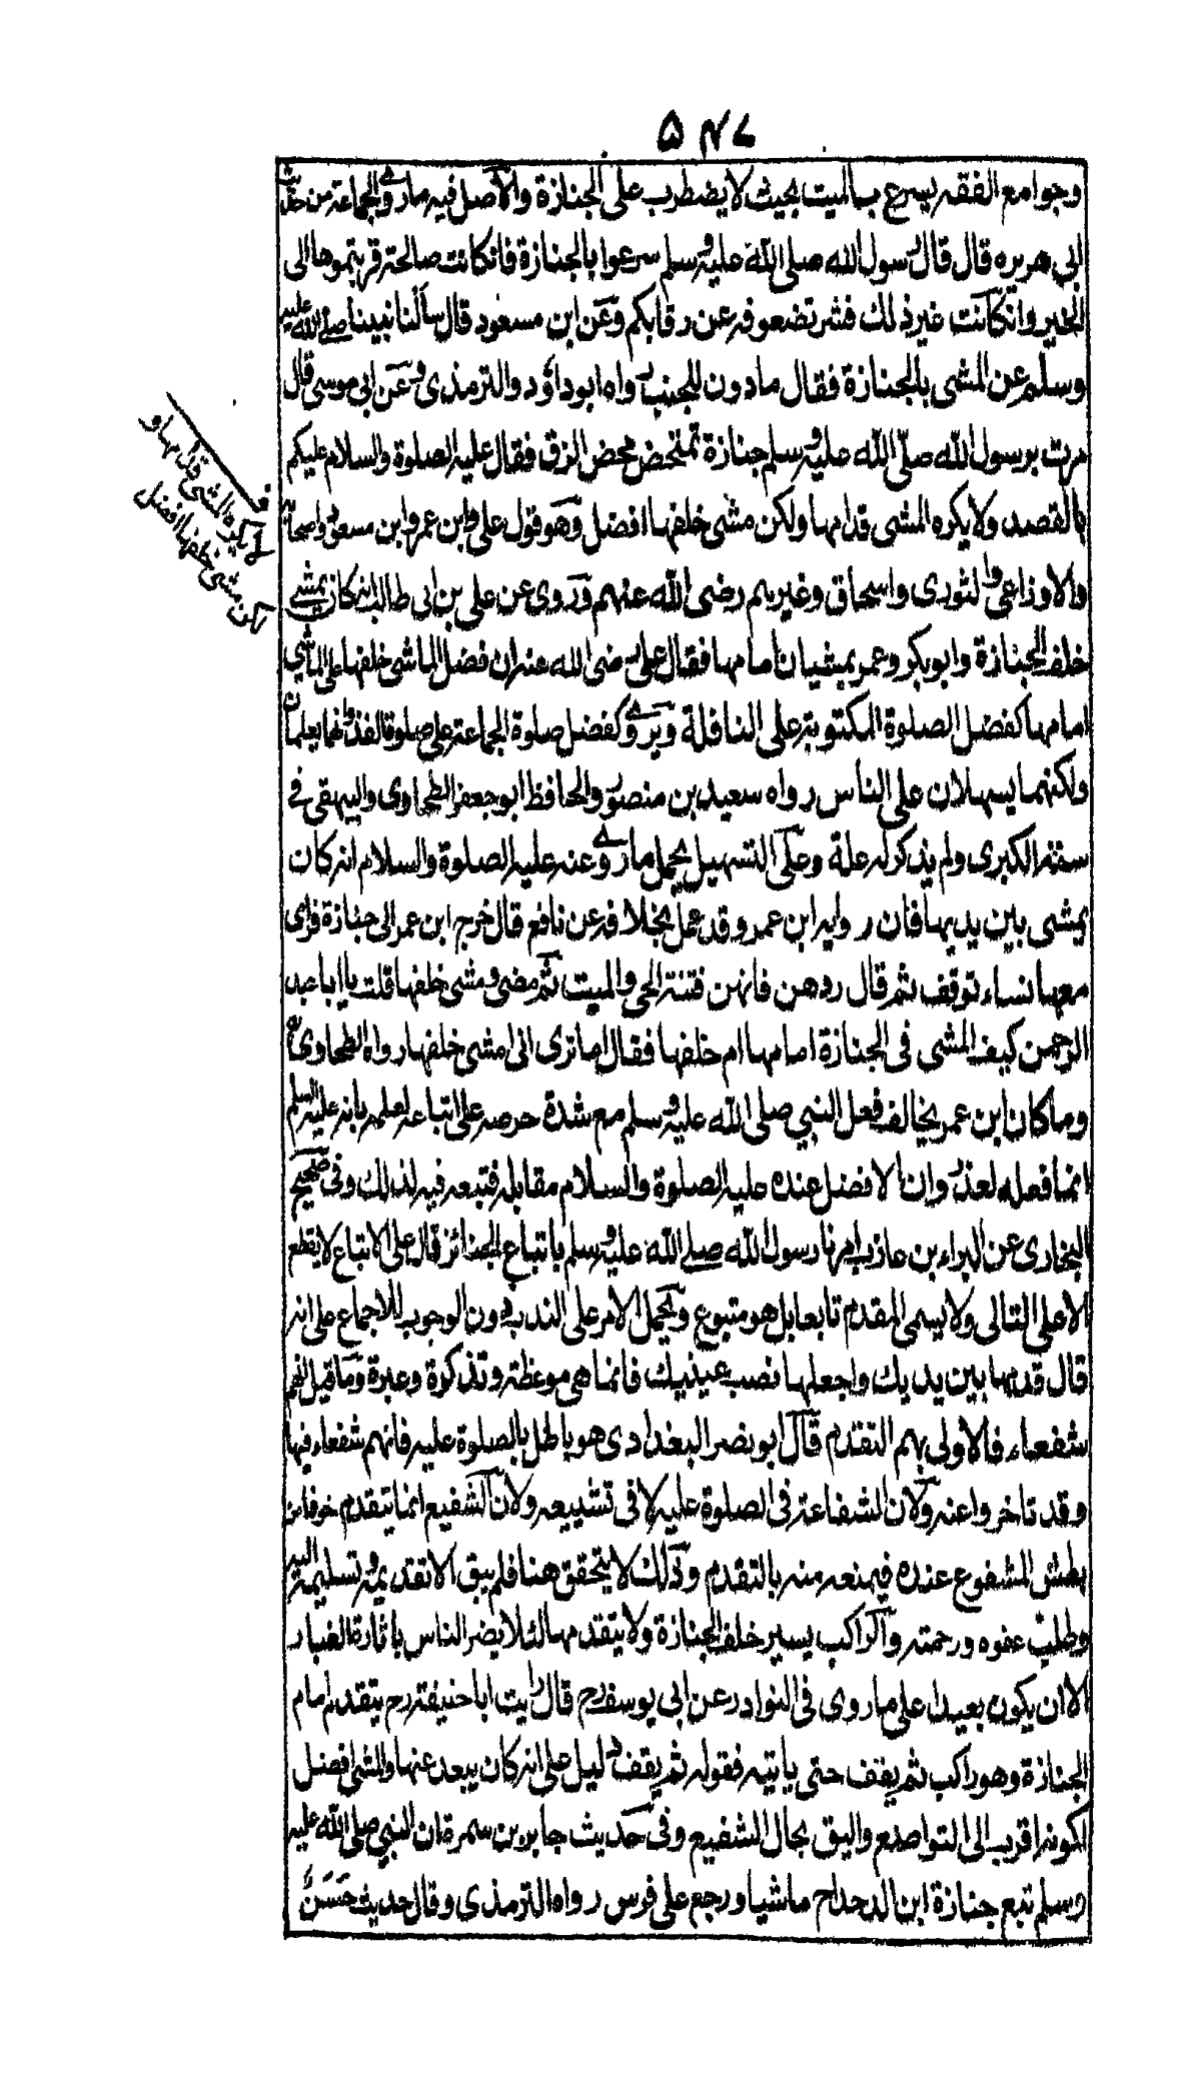 ٥٤٧
وجوامع الفقه يسرع بالميت بحيث لا يضطرب على الجنازة والاصل فيه ما روى الجماعة من حديث
ابى هريره قال قال رسول الله صلى الله عليه وسلم سرعوا بالجنازة فانكانت صالحة قربتموها الى
الخير وانكانت غير ذلك فشر تضعوفه عن رقابكم وعن ابن مسعود قال سألنا نبينا صلى الله عليه
وسلم عن المشى بالجنازة فقال ما دون للجنب رواه ابو داؤد والترمذى وعن ابى موسى قال
مرت برسول الله صلى الله عليه وسلم جنازة تمتخض مخض الزق فقال عليه الصلوة والسلام عليكم
بالقصد ولا يكره المشى قدامها ولكن مشى خلفها افضل وهو قول على وابن عمر وابن مسعود واصحابه
والاوزاعى والثورى واسحاق وغيرهم رضى الله عنهم وروى عن على بن ابى طالب انه كان يمشى
خلف الجنازة وابو بكر وعمر يمشيان امامها فقال على رضى الله عنه ان فضل الماشى خلفها على الماشي
امامها كفضل الصلوة المكتوبة على النافلة ويروى كفضل صلوة الجماعة على صلوة الفذ وانهما يعلمان
ولكنهما يسهلان على الناس رواه سعيد بن منصور والحافظ ابو جعفر الطحاوى والبيهقى فى
سننه الكبرى ولم يذكر له علة وعلى التسهيل يحمل ما روى عنه عليه الصلوة والسلام انه كان
يمشى بين يديها فان راويه ابن عمر وقد عمل بخلافه عن نافع قال خرج ابن عمر الى جنازة فراى
معها نساء توقف ثم قال ردهن فانهن فتنة الحى والميت ثم مضى ومشى خلفها قلت يا ابا عبد
الرحمن كيف المشى فى الجنازة امامها ام خلفها فقال اما ترى انى امشى خلفها رواه الطحاوى
وما كان ابن عمر يخالف فعل النبي صلى الله عليه وسلم مع شدة حرصه على اتباعه لعلمه بانه عليه السلم
انما فعله لعذر وان الافضل عنده عليه الصلوة والسلام مقابله فتبعه فيه لذلك وفى صحيح
البخارى عن البراء بن عازب امرنا رسول الله صلى الله عليه وسلم باتباع الجنائز قال على الاتباع لا يقطع
الا على التالى ولا يسمى المقدم تابعا بل هو متبوع ويحمل الامر على الندب دون الوجوب للاجماع على انه
قال قدمها بين يديك واجعلها نصب عينيك فانما هى موعظة وتذكرة وعبرة وما قيل انهم
شفعاء فالاولى بهم التقدم قال ابو نصر البغدادى هو باطل بالصلوة عليه فانهم شفعاء فيها
وقد تاخروا عنه ولان الشفاعة فى الصلوة عليه لا فى تشييعه ولان الشفيع انما يتقدم خوفا من
بطش المشفوع عنده فيمنعه منه بالتقدم وذلك لا يتحقق هنا فلم يبق الا تقديمه وتسليمه اليه
وطلب عفوه ورحمته والراكب يسير خلف الجنازة ولا يتقدمها لئلا يضر الناس باثارة الغبار
الا ان يكون بعيدا على ما روى فى النوادر عن ابى يوسف رح قال رايت ابا حنيفة رح يتقدم امام
الجنازة وهو راكب ثم يقف حتى ياتيه فقوله ثم يقف دليل على انه كان يبعد عنها والمشى افضل
لكونه اقرب الى التواضع واليق بحال الشفيع وفى حديث جابر بن سمرة ان النبي صلى الله عليه
وسلم تبع جنازة ابن الدحداح ماشيا ورجع على فرس رواه الترمذى وقال حديث حسن
لا يكره المشى قدامها و
لكن مشى خلفها افضل